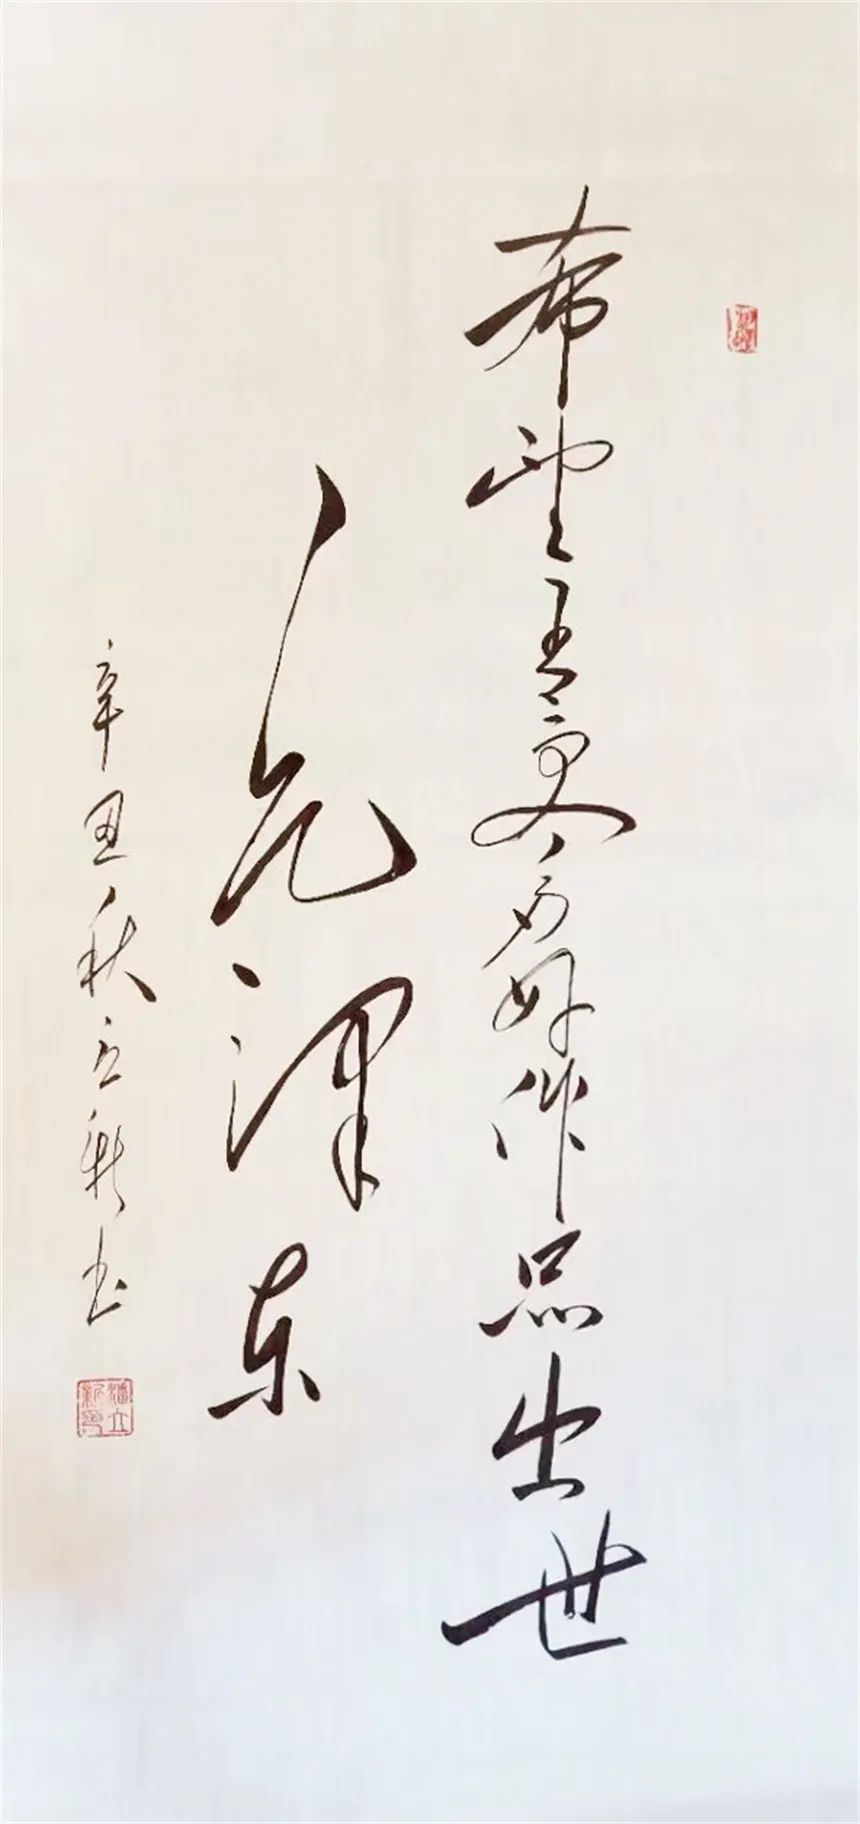 希望有更多好作品出世
毛泽东
辛丑秋立新书